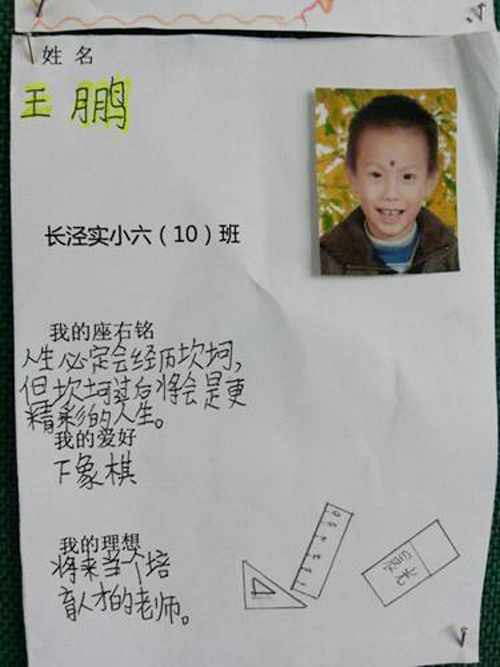 姓 名
王 鹏
长泾实小六（10）班
我的座右铭
人生必定会经历坎坷,
但坎坷过后将会是更
精彩的人生。
我的爱好
下象棋
我的理想
将来当个培
育人才的老师。